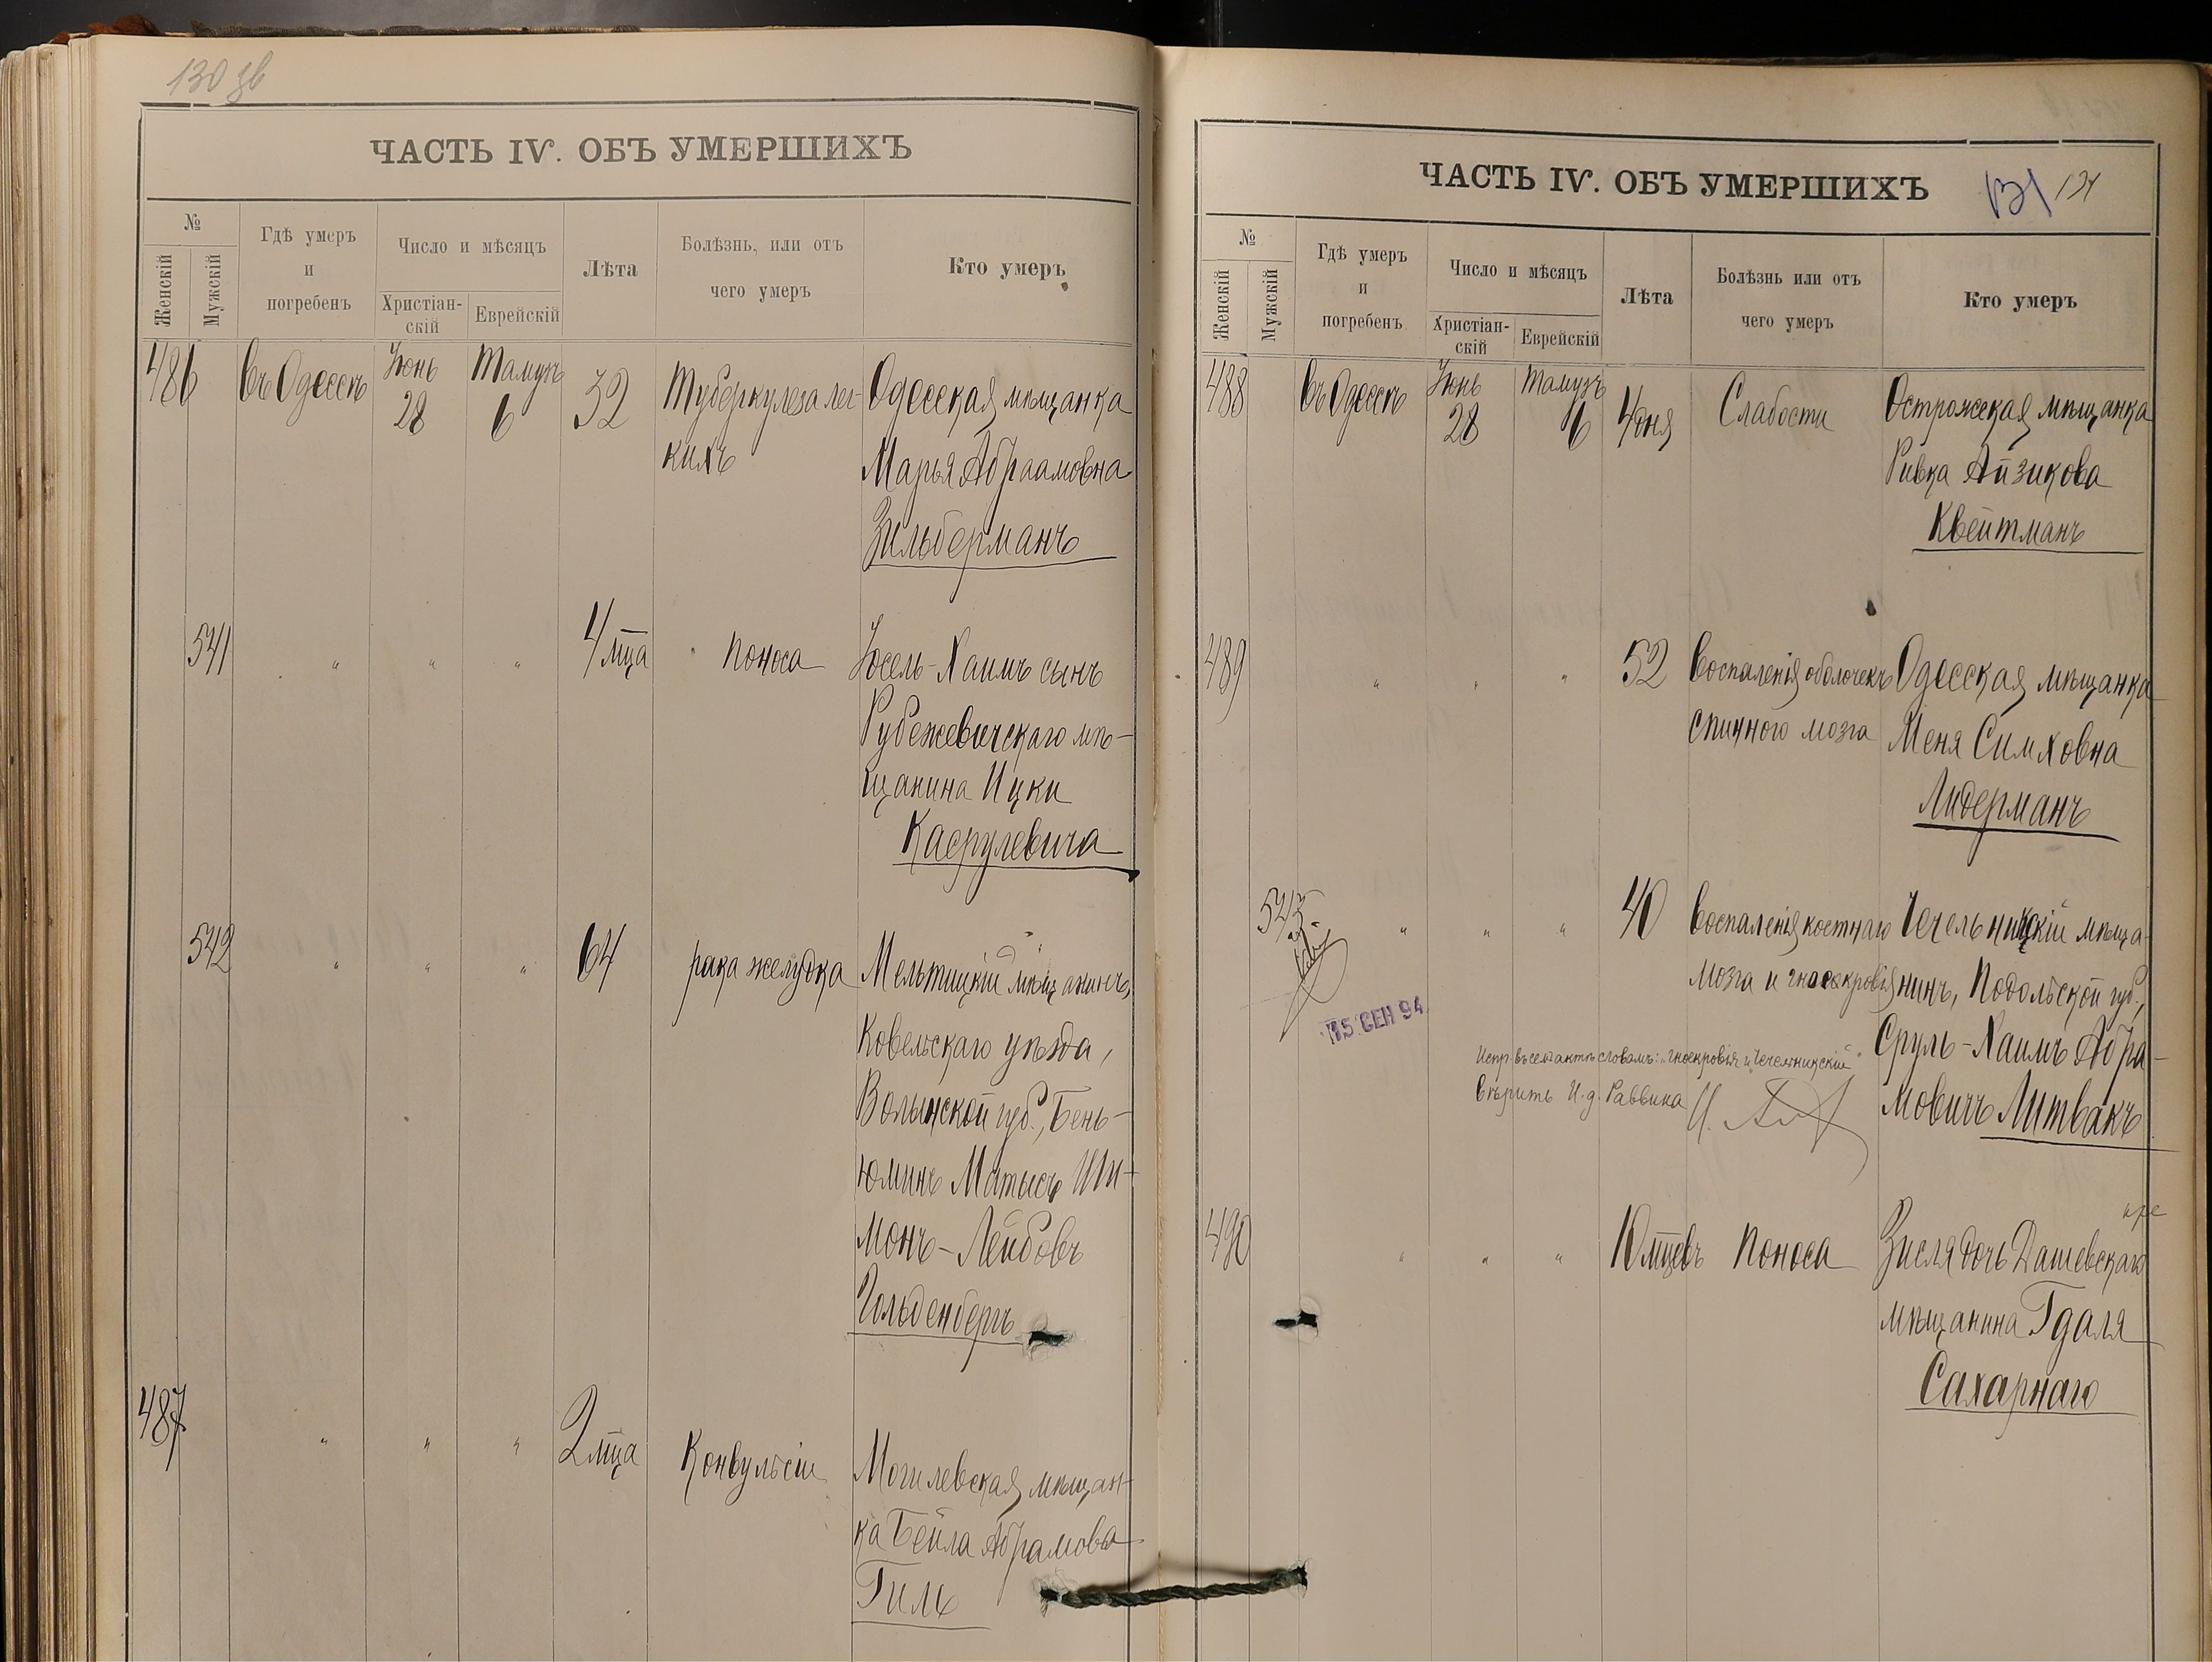 130 зв
ЧАСТЬ IV. ОБЪ УМЕРШИХЪ
№
Женскій
Мужскій
Гдѣ умеръ
и
погребенъ
Число и мѣсяцъ
Христіан-
скій
Еврейскій
Лѣта
Болѣзнь, или отъ
чего умеръ
Кто умеръ
486 Въ Одессѣ Іюнь 28 Тамузъ 6 32 Туберкулеза лег- Одесская мѣщанка
кихъ Марья Абраамовна
Зильберманъ
541 " " " 4 мца поноса Іосель-Хаимъ сынъ
Рубежевичскаго мѣ-
щанина Ицки
Касрулевича
542 " " " 64 рака желудка Мельницкій мѣщанинъ,
Ковельскаго уѣзда,
Волынской губ., Бень-
юминъ Матысъ Ши-
монъ-Лейбовъ
Гольденбергъ
487 " " " 2 мца Конвульсіи Могилевская мѣщан-
ка Бейла Абрамова
Гиль
ЧАСТЬ IV. ОБЪ УМЕРШИХЪ 131 131
№
Женскій
Мужскій
Гдѣ умеръ
и
погребенъ
Число и мѣсяцъ
Христіан-
скій
Еврейскій
Лѣта
Болѣзнь или отъ
чего умеръ
Кто умеръ
488 Въ Одессѣ Іюнь 28 Тамузъ 6 4 дня Слабости Острожская мѣщанка
Ривка Айзикова
Квейтманъ
489 " " " 52 Воспаленія оболочекъ Одесская мѣщанка
спиннаго мозга Меня Симховна
Лидерманъ
543 " " " 40 Воспаленія костнаго Чечельникскій мѣща-
мозга и гноекровія нинъ, Подольской губ.,
15 СЕН 94
Сруль-Хаимъ Абра-
мовичъ Литвакъ
Испр. въ семъ актѣ словамъ: "гноекровія и Чечельникскій"
вѣрить И.д. Раввина
490 " " " 10 мцевъ Поноса Зисля дочь Дашевскаго
мѣщанина Гдаля
Сахарнаго